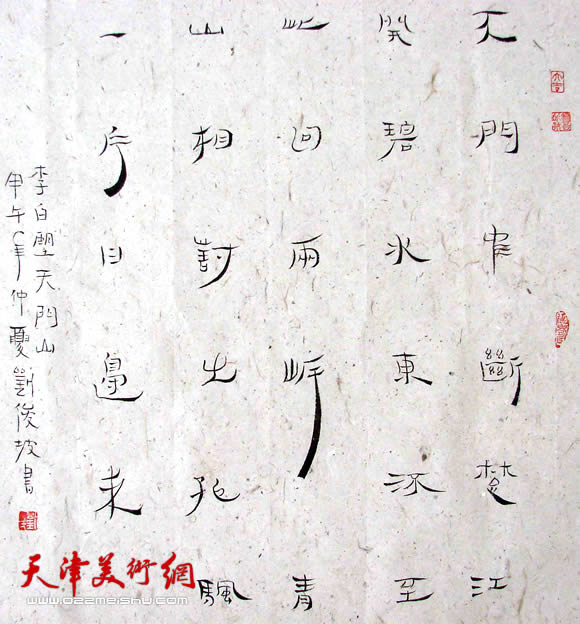 天門中斷楚江
開碧水東流至
此回兩岸青
山相對出孤颿
一片日邊來
李白望天門山
甲午年仲夏劉俊坡書
天津美術網
www.022meishu.com